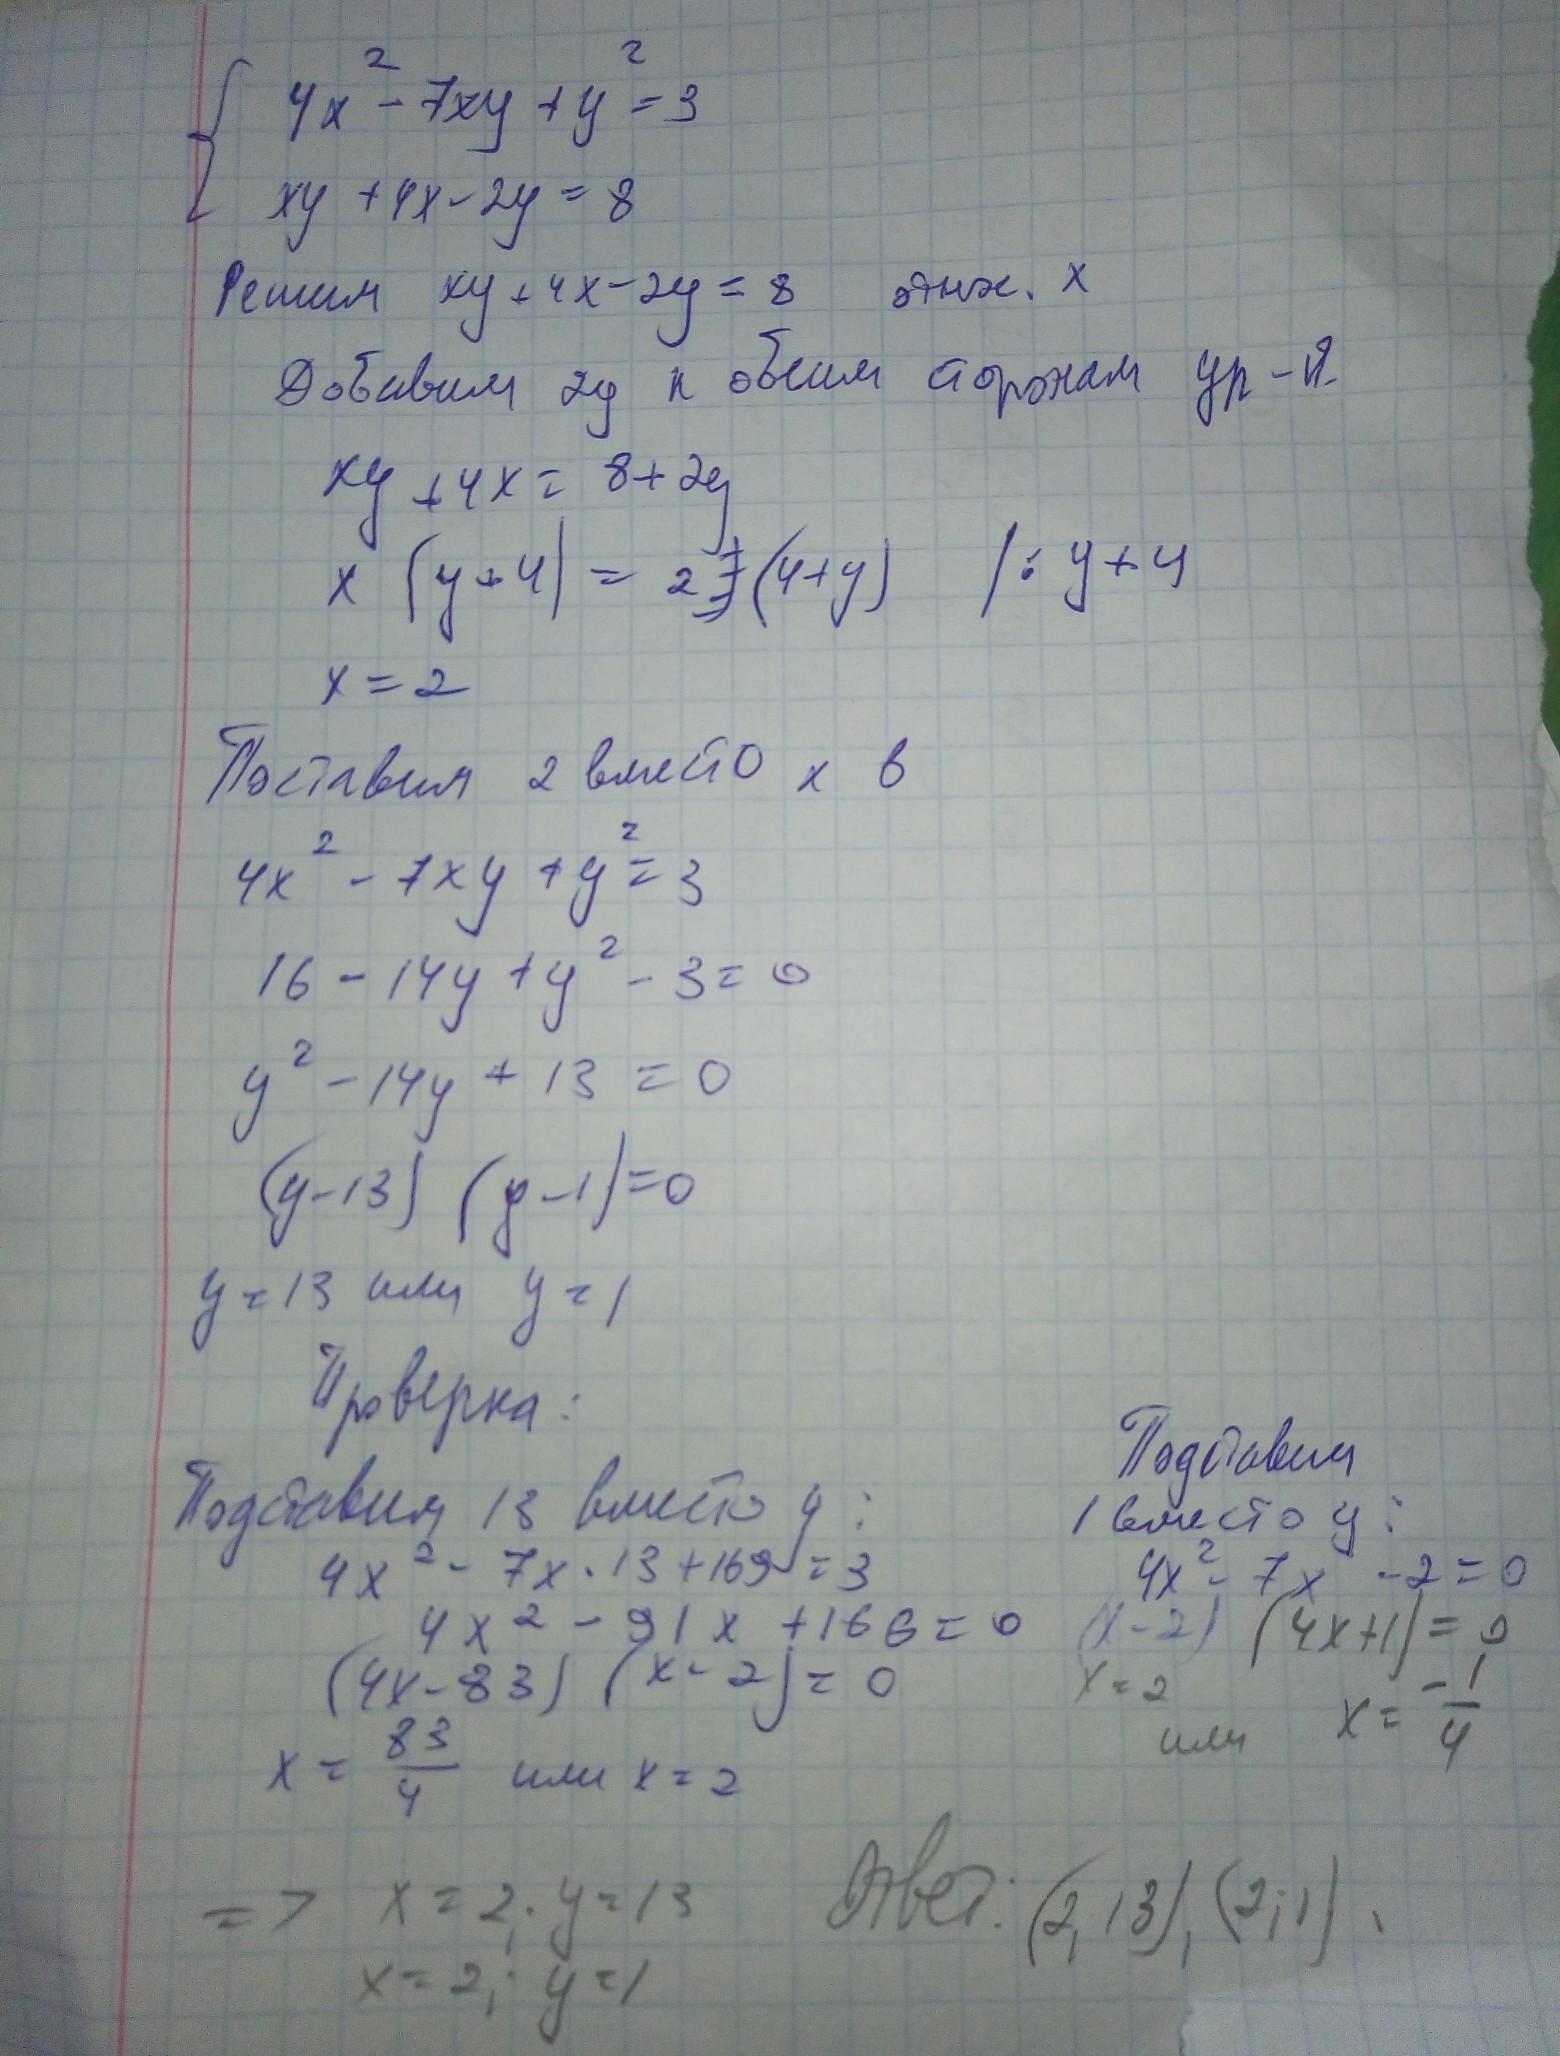 4x² - 7xy + y² = 3
xy + 4x - 2y = 8
Решим xy + 4x - 2y = 8 отнж. x
Добавим 2y к обеим сторонам ур-я.
xy + 4x = 8 + 2y
x (y + 4) = 2 (4 + y) /: y + 4
x = 2
Поставим 2 вместо x в
4x² - 7xy + y² = 3
16 - 14y + y² - 3 = 0
y² - 14y + 13 = 0
(y - 13) (y - 1) = 0
y = 13 или y = 1
Проверка:
Подставим 13 вместо y:
4x² - 7x · 13 + 169 = 3
4x² - 91x + 166 = 0
(4x - 83) (x - 2) = 0
x = 83/4 или x = 2
Подставим
1 вместо y:
4x² - 7x - 2 = 0
(x - 2) (4x + 1) = 0
x = 2
или x = -1/4
=> x = 2; y = 13
x = 2; y = 1
Ответ: (2; 13), (2; 1).